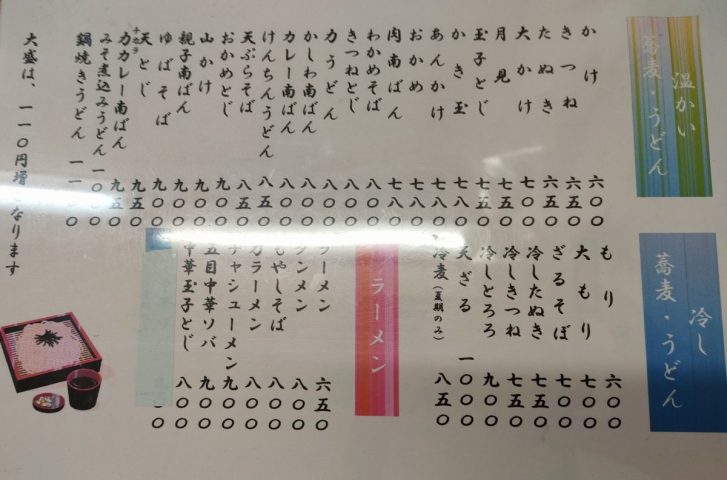 温かい
蕎麦・うどん
かけ 六〇〇
きつね 六五〇
たぬき 六五〇
大かけ 七〇〇
月見 七五〇
玉子とじ 七五〇
かき玉 七八〇
あんかけ 七八〇
おかめ 七八〇
肉南ばん 七八〇
わかめそば 八〇〇
きつねとじ 八〇〇
力うどん 八〇〇
かしわ南ばん 八〇〇
カレー南ばん 八〇〇
けんちんうどん 八五〇
天ぷらそば 八五〇
おかめとじ 九〇〇
山かけ 九〇〇
親子南ばん 九〇〇
ゆばそば 九〇〇
天とじ 九五〇
力カレー南ばん 九五〇
みそ煮込みうどん 一〇〇〇
鍋焼きうどん 一一〇〇
大盛は、一一〇円増になります
冷し
蕎麦・うどん
もり 六〇〇
大もり 七〇〇
ざるそば 七〇〇
冷したぬき 七五〇
冷しきつね 七五〇
冷しとろろ 九〇〇
天ざる 一〇〇〇
冷麦(夏期のみ) 八五〇
ラーメン
ラーメン 六五〇
タンメン 八〇〇
もやしそば 八〇〇
力ラーメン 八〇〇
チャシューメン 九〇〇
五目中華ソバ 九〇〇
中華玉子とじ 八〇〇